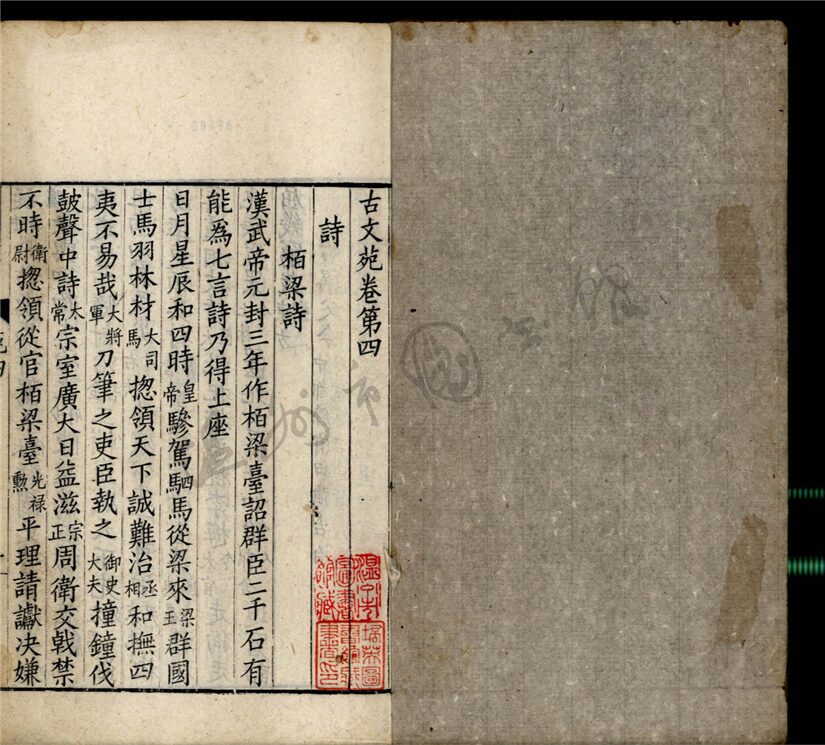 古文苑卷第四
詩
栢梁詩
漢武帝元封三年作栢梁臺詔群臣二千石有
能為七言詩乃得上座
日月星辰和四時皇帝驂駕駟馬從梁來梁王群國
士馬羽林材大司馬揔領天下誠難治丞相和撫四
夷不易哉大將軍刀筆之吏臣執之御史大夫撞鐘伐
皷聲中詩太常宗室廣大日益滋宗正周衛交戟禁
不時衛尉揔領從官栢梁臺光禄勲平理請讞決嫌
温州市圖書館藏